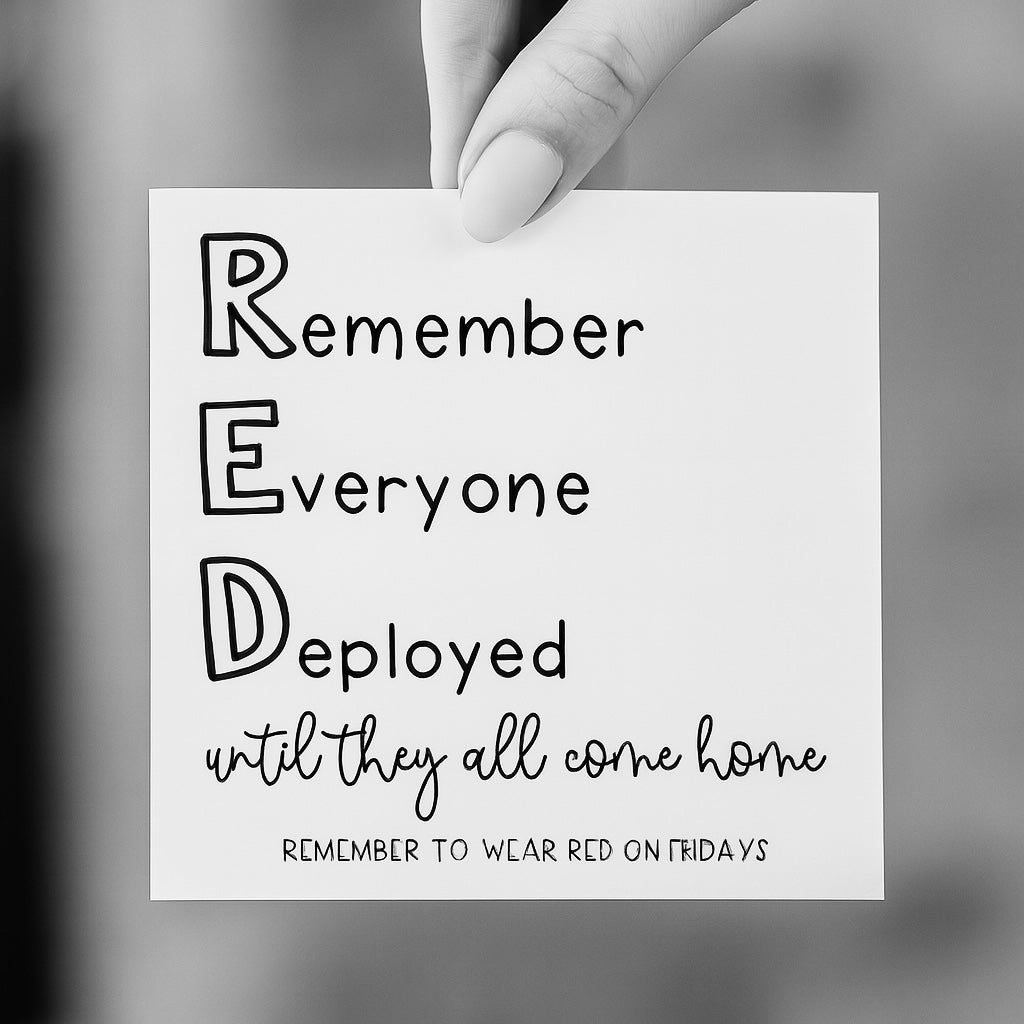 Remember
Everyone
Deployed
until they all come home
REMEMBER TO WEAR RED ON FRIDAYS